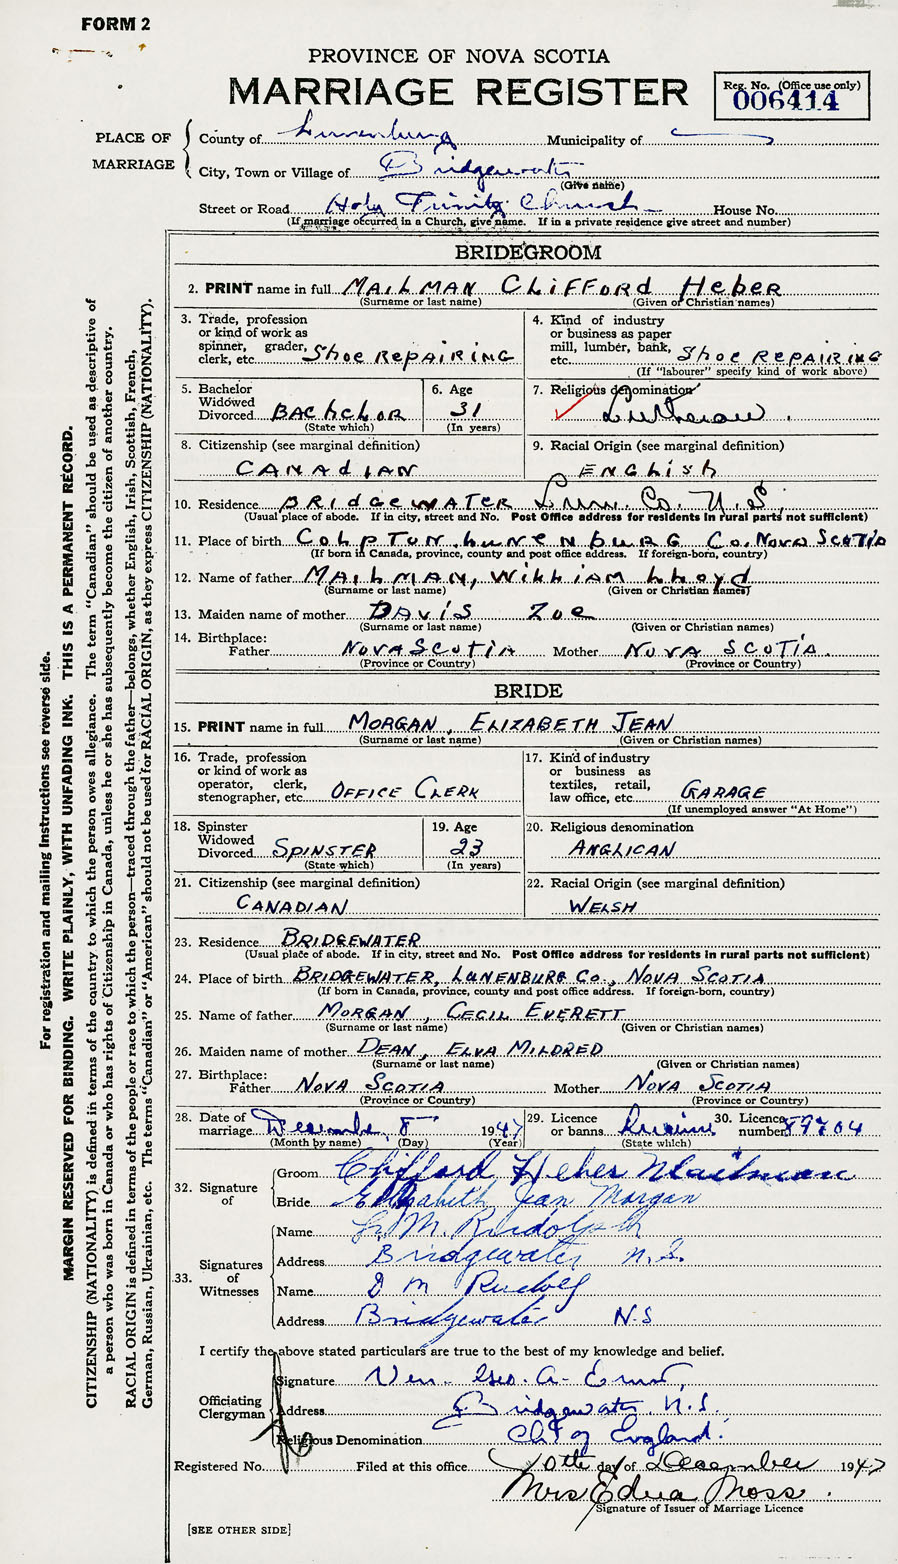 FORM 2
PROVINCE OF NOVA SCOTIA
MARRIAGE REGISTER
Reg. No. (Office use only)
006414
PLACE OF MARRIAGE
County of Lunenburg Municipality of
City, Town or Village of Bridgewater
(Give name)
Street or Road Holy Trinity Church House No.
(If marriage occurred in a Church, give name. If in a private residence give street and number)
BRIDEGROOM
2. PRINT name in full MAILMAN CLIFFORD HEBER
(Surname or last name) (Given or Christian names)
3. Trade, profession
or kind of work as
spinner, grader,
clerk, etc. SHOE REPAIRING
4. Kind of industry
or business as paper
mill, lumber, bank,
etc. SHOE REPAIRING
(If "labourer" specify kind of work above)
5. Bachelor
Widowed
Divorced BACHELOR
(State which)
6. Age
31
(In years)
7. Religious denomination
Lutheran.
8. Citizenship (see marginal definition)
CANADIAN
9. Racial Origin (see marginal definition)
ENGLISH
10. Residence BRIDGEWATER Lun. Co. N.S.
(Usual place of abode. If in city, street and No. Post Office address for residents in rural parts not sufficient)
11. Place of birth COLPTON LUNENBURG CO. NOVA SCOTIA
(If born in Canada, province, county and post office address. If foreign-born, country)
12. Name of father MAILMAN, WILLIAM LLOYD
(Surname or last name) (Given or Christian names)
13. Maiden name of mother DAVIS ZOE
(Surname or last name) (Given or Christian names)
14. Birthplace:
Father NOVA SCOTIA Mother NOVA SCOTIA.
(Province or Country) (Province or Country)
BRIDE
15. PRINT name in full MORGAN, ELIZABETH JEAN
(Surname or last name) (Given or Christian names)
16. Trade, profession
or kind of work as
operator, clerk,
stenographer, etc. OFFICE CLERK
17. Kind of industry
or business as
textiles, retail,
law office, etc. GARAGE
(If unemployed answer "At Home")
18. Spinster
Widowed
Divorced SPINSTER
(State which)
19. Age
23
(In years)
20. Religious denomination
ANGLICAN
21. Citizenship (see marginal definition)
CANADIAN
22. Racial Origin (see marginal definition)
WELSH
23. Residence BRIDGEWATER
(Usual place of abode. If in city, street and No. Post Office address for residents in rural parts not sufficient)
24. Place of birth BRIDGEWATER, LUNENBURG CO., NOVA SCOTIA
(If born in Canada, province, county and post office address. If foreign-born, country)
25. Name of father MORGAN, CECIL EVERETT
(Surname or last name) (Given or Christian names)
26. Maiden name of mother DEAN, ELVA MILDRED
(Surname or last name) (Given or Christian names)
27. Birthplace:
Father NOVA SCOTIA Mother NOVA SCOTIA
(Province or Country) (Province or Country)
28. Date of
marriage December 8 1947
(Month by name) (Day) (Year)
29. Licence
or banns License
(State which)
30. Licence
number 89704
32. Signature of
Groom Clifford Heber Mailman
Bride Elizabeth Jean Morgan
33. Signatures of Witnesses
Name M. Rudolph
Address Bridgewater N.S.
Name D M Rudolf
Address Bridgewater N.S
I certify the above stated particulars are true to the best of my knowledge and belief.
Officiating Clergyman
Signature Ven. Geo. A. Ernst,
Address Bridgewater N.S.
Religious Denomination Ch. of England.
Registered No. Filed at this office 10th day of December 1947
Mrs Edna Moss.
Signature of Issuer of Marriage Licence
[SEE OTHER SIDE]
For registration and mailing instructions see reverse side.
MARGIN RESERVED FOR BINDING. WRITE PLAINLY, WITH UNFADING INK. THIS IS A PERMANENT RECORD.
CITIZENSHIP (NATIONALITY) is defined in terms of the country to which the person owes allegiance. The term "Canadian" should be used as descriptive of
a person who was born in Canada or who has rights of Citizenship in Canada, unless he or she has subsequently become the citizen of another country.
RACIAL ORIGIN is defined in terms of the people or race to which the person—traced through the father—belongs, whether English, Irish, Scottish, French,
German, Russian, Ukrainian, etc. The terms "Canadian" or "American" should not be used for RACIAL ORIGIN, as they express CITIZENSHIP (NATIONALITY).